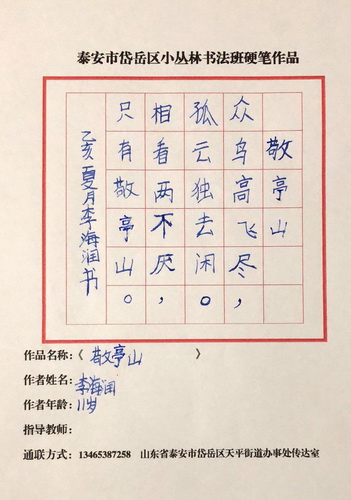 泰安市岱岳区小丛林书法班硬笔作品
敬亭山
众鸟高飞尽，
孤云独去闲。
相看两不厌，
只有敬亭山。
乙亥夏月李海润书
作品名称：《 敬亭山 》
作者姓名：李海润
作者年龄：11岁
指导教师：
通联方式： 13465387258 山东省泰安市岱岳区天平街道办事处传达室